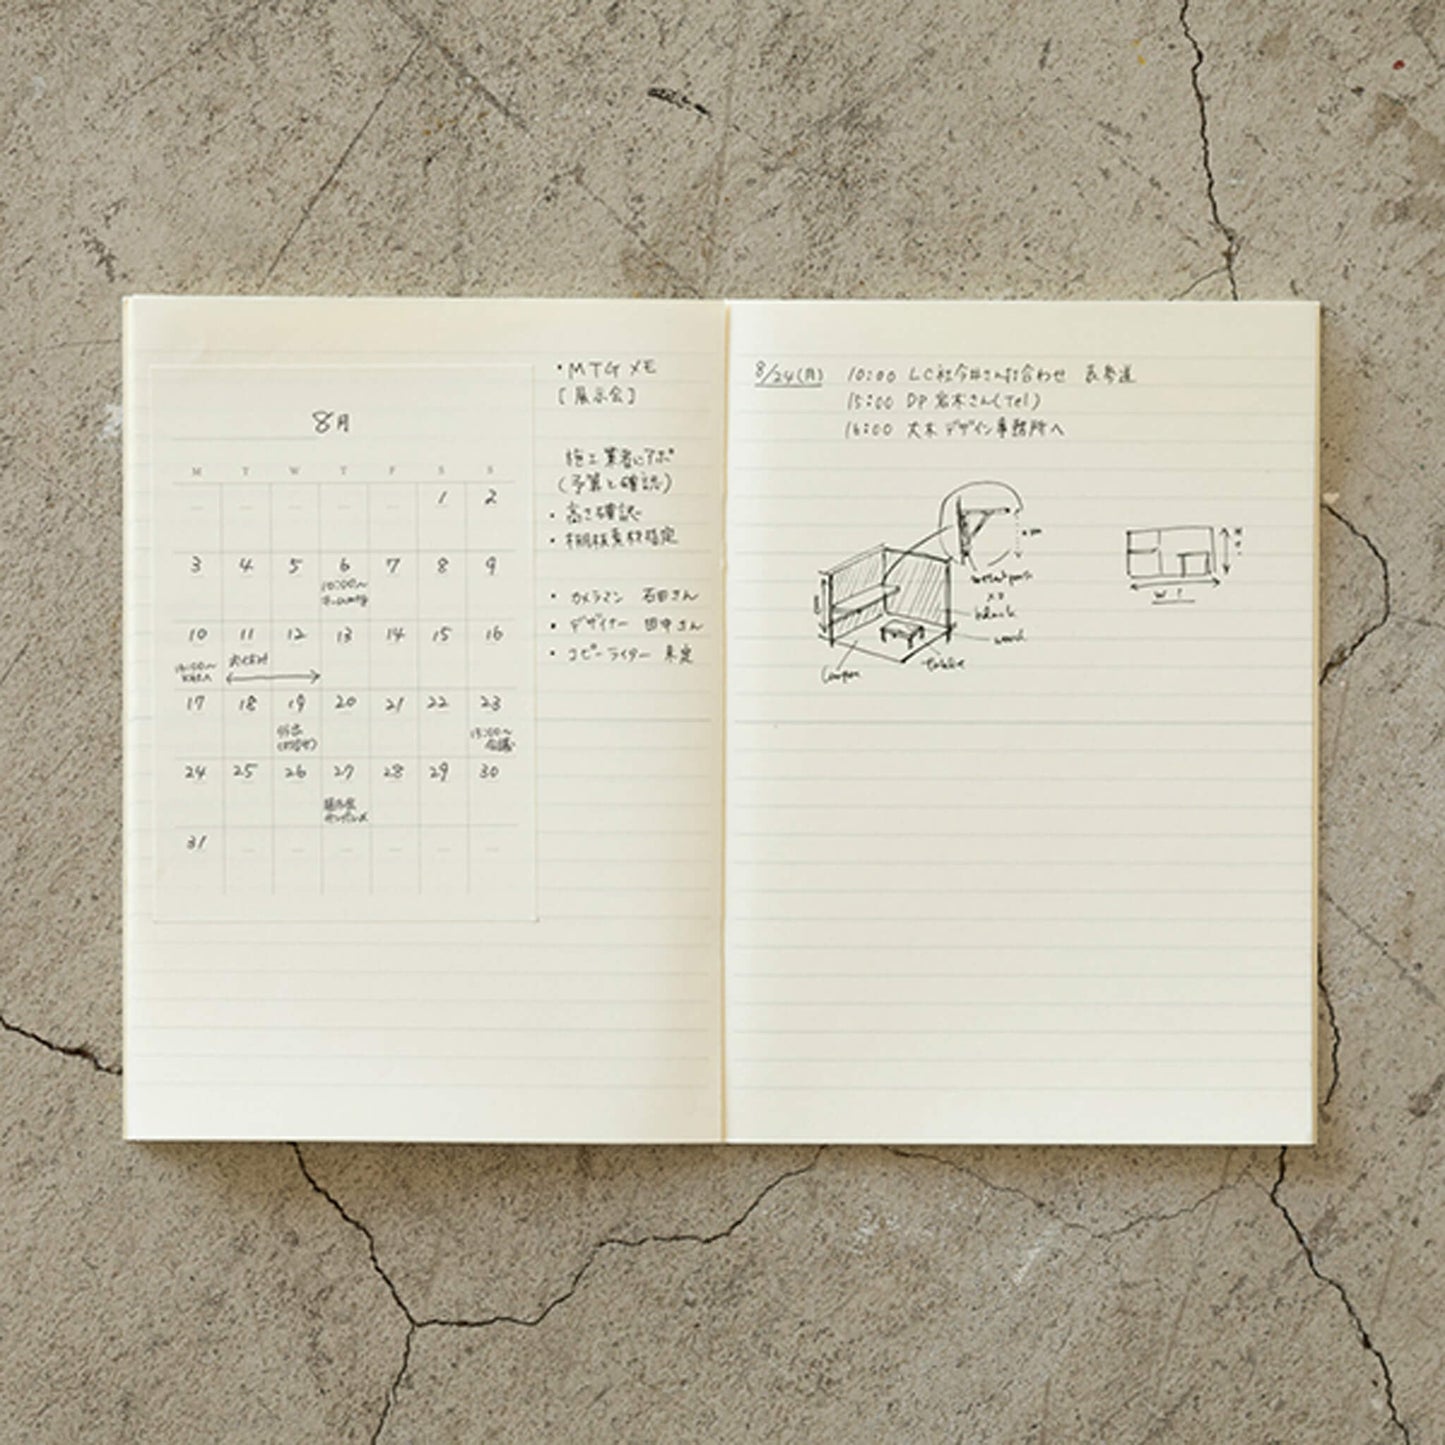 8月
M T W T F S S
1 2
3 4 5 6 7 8 9
10:00〜
10 11 12 13 14 15 16
17 18 19 20 21 22 23
外出
13:00〜
会議
24 25 26 27 28 29 30
展示会
31
・MTG メモ
[展示会]
施工業者にアポ
(予算と確認)
・高さ確認
・棚板素材指定
・カメラマン 石田さん
・デザイナー 田中さん
・コピーライター 未定
8/24(月) 10:00 LC社今井さん打合わせ 表参道
15:00 DP 岩木さん(Tel)
16:00 大木デザイン事務所へ
black
wood
table
W